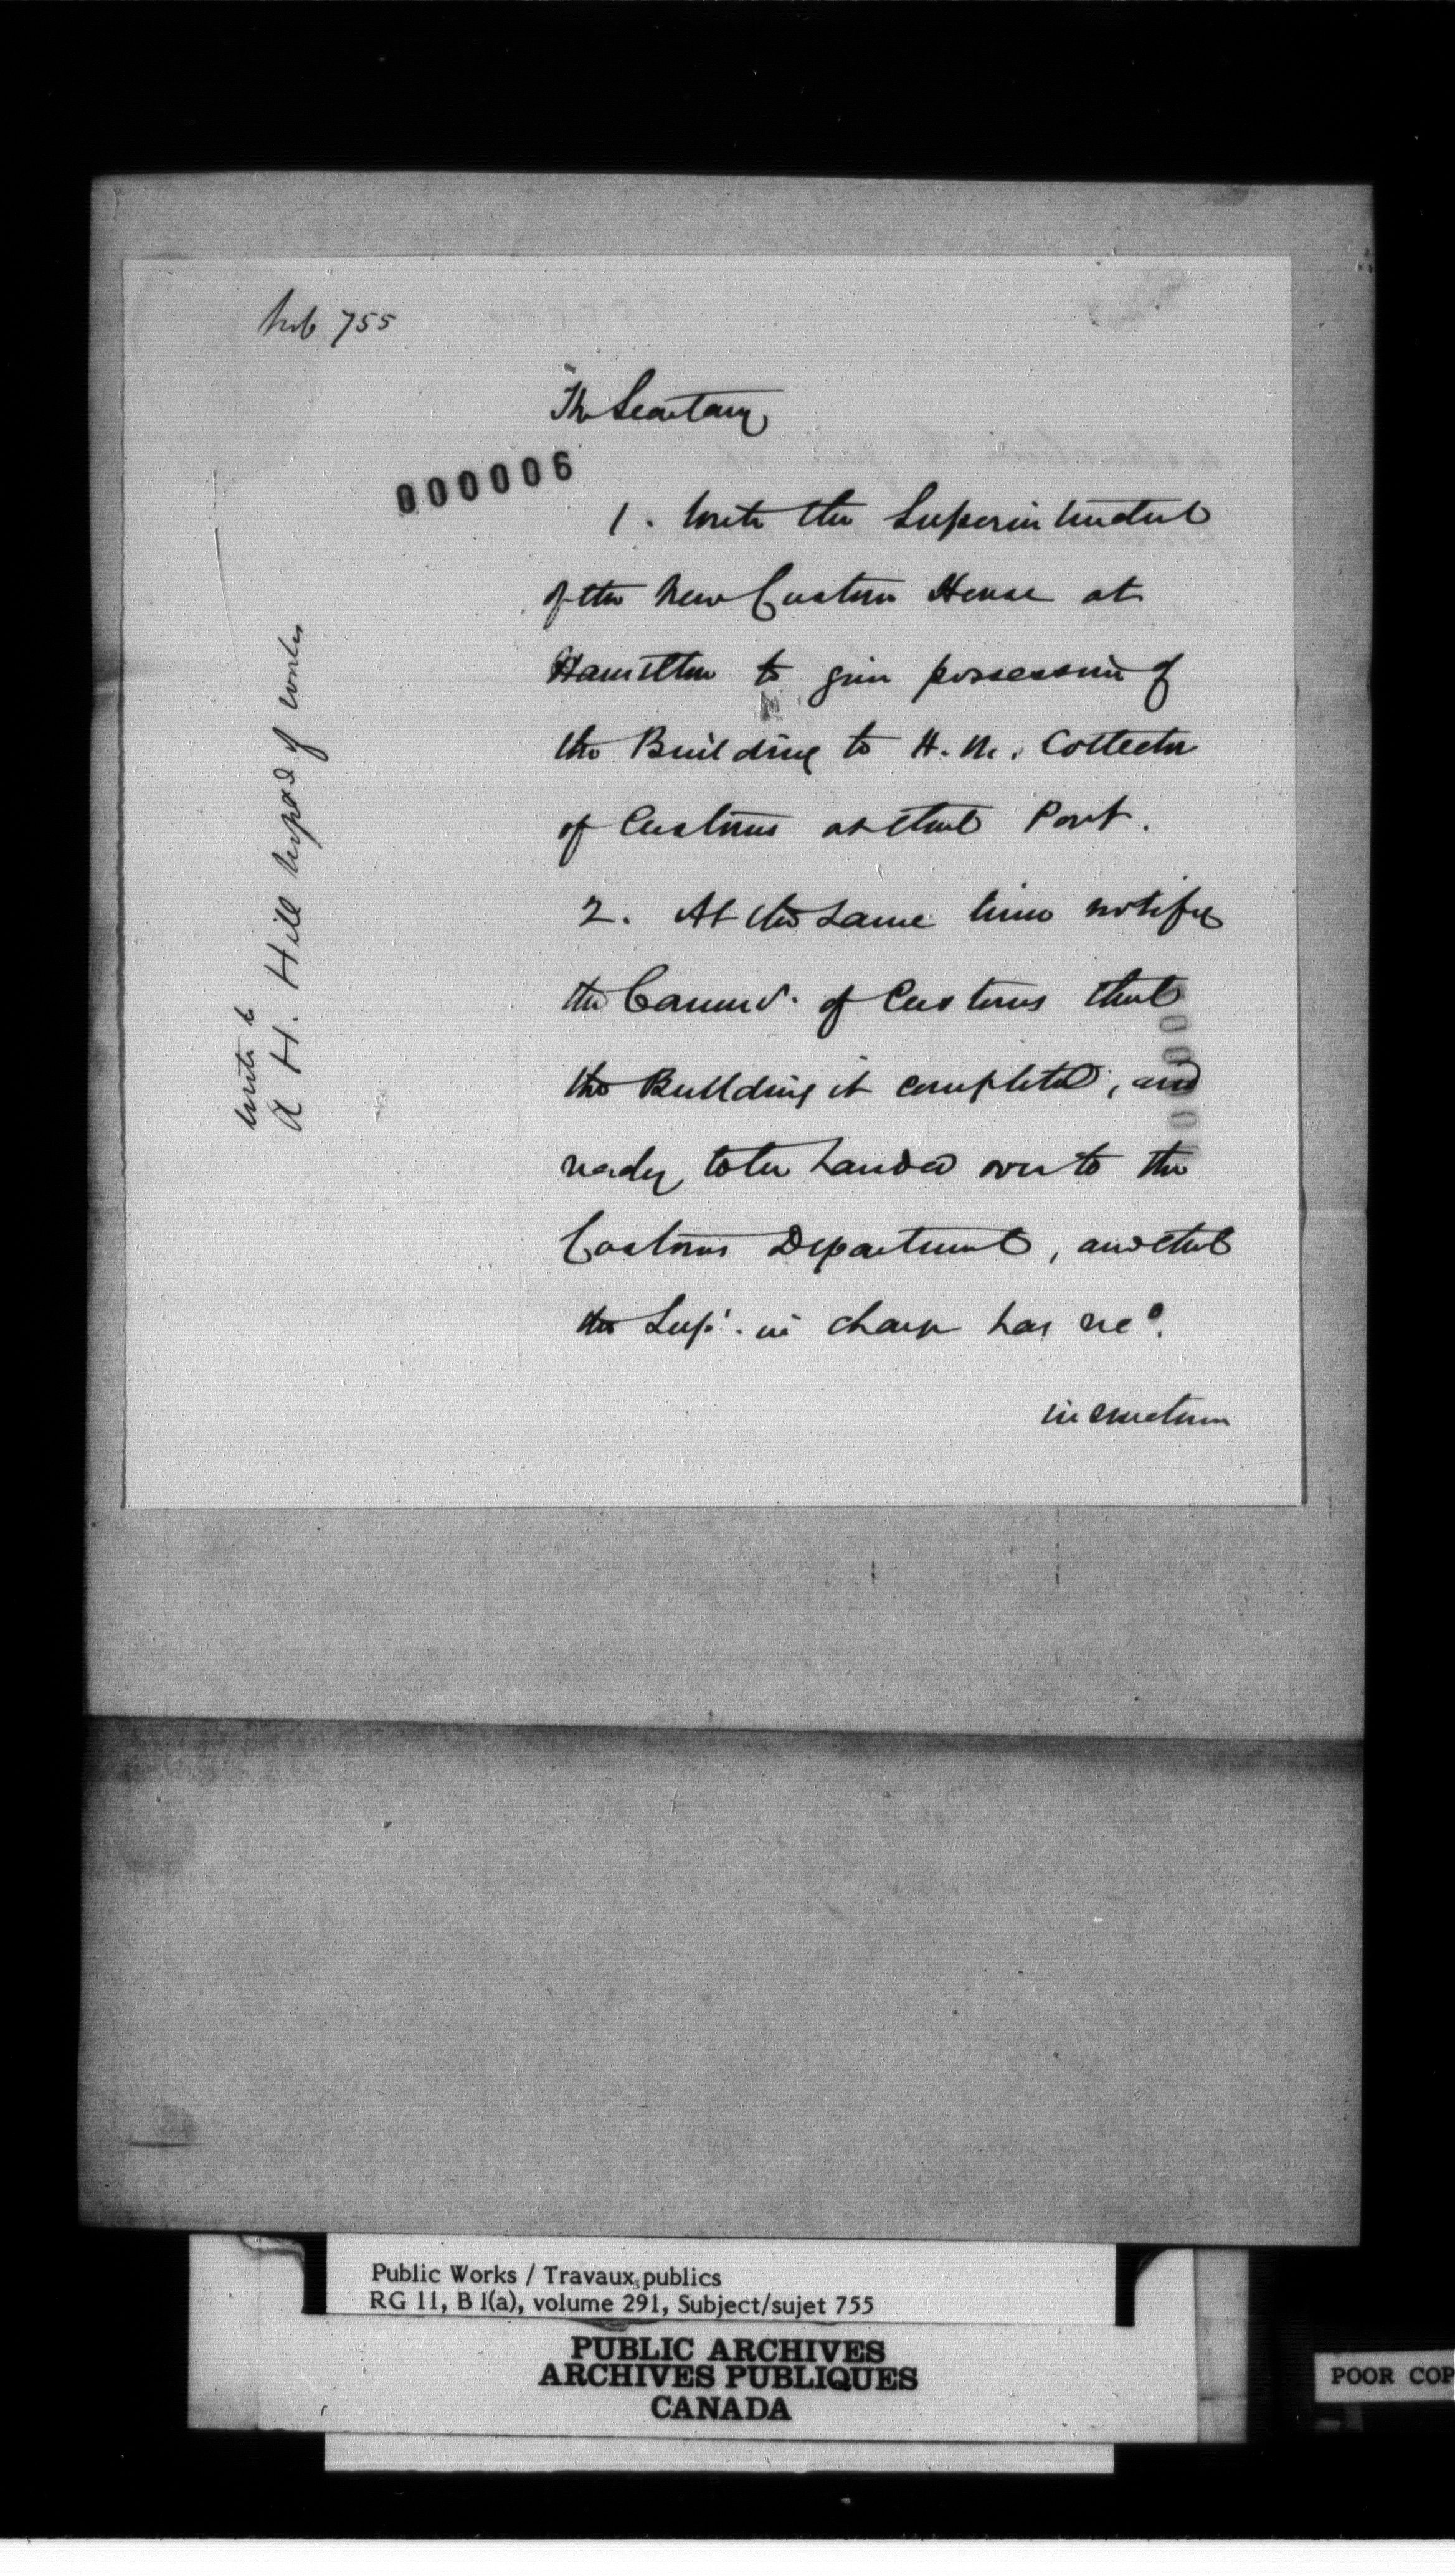 Sub 755
The Secretary
000006
1. Write the Superintendent
of the New Custom House at
Hamilton to give possession of
the Building to H. M. Collector
of Customs at that Port.
2. At the same time notify
the Commr. of Customs that
the Building is completed, and
ready to be handed over to the
Customs Department, and that
the Supt. in charge has recd.
instructions
write to
A. H. Hill Supd of works
Public Works / Travaux publics
RG 11, B 1(a), volume 291, Subject/sujet 755
PUBLIC ARCHIVES
ARCHIVES PUBLIQUES
CANADA
POOR COP